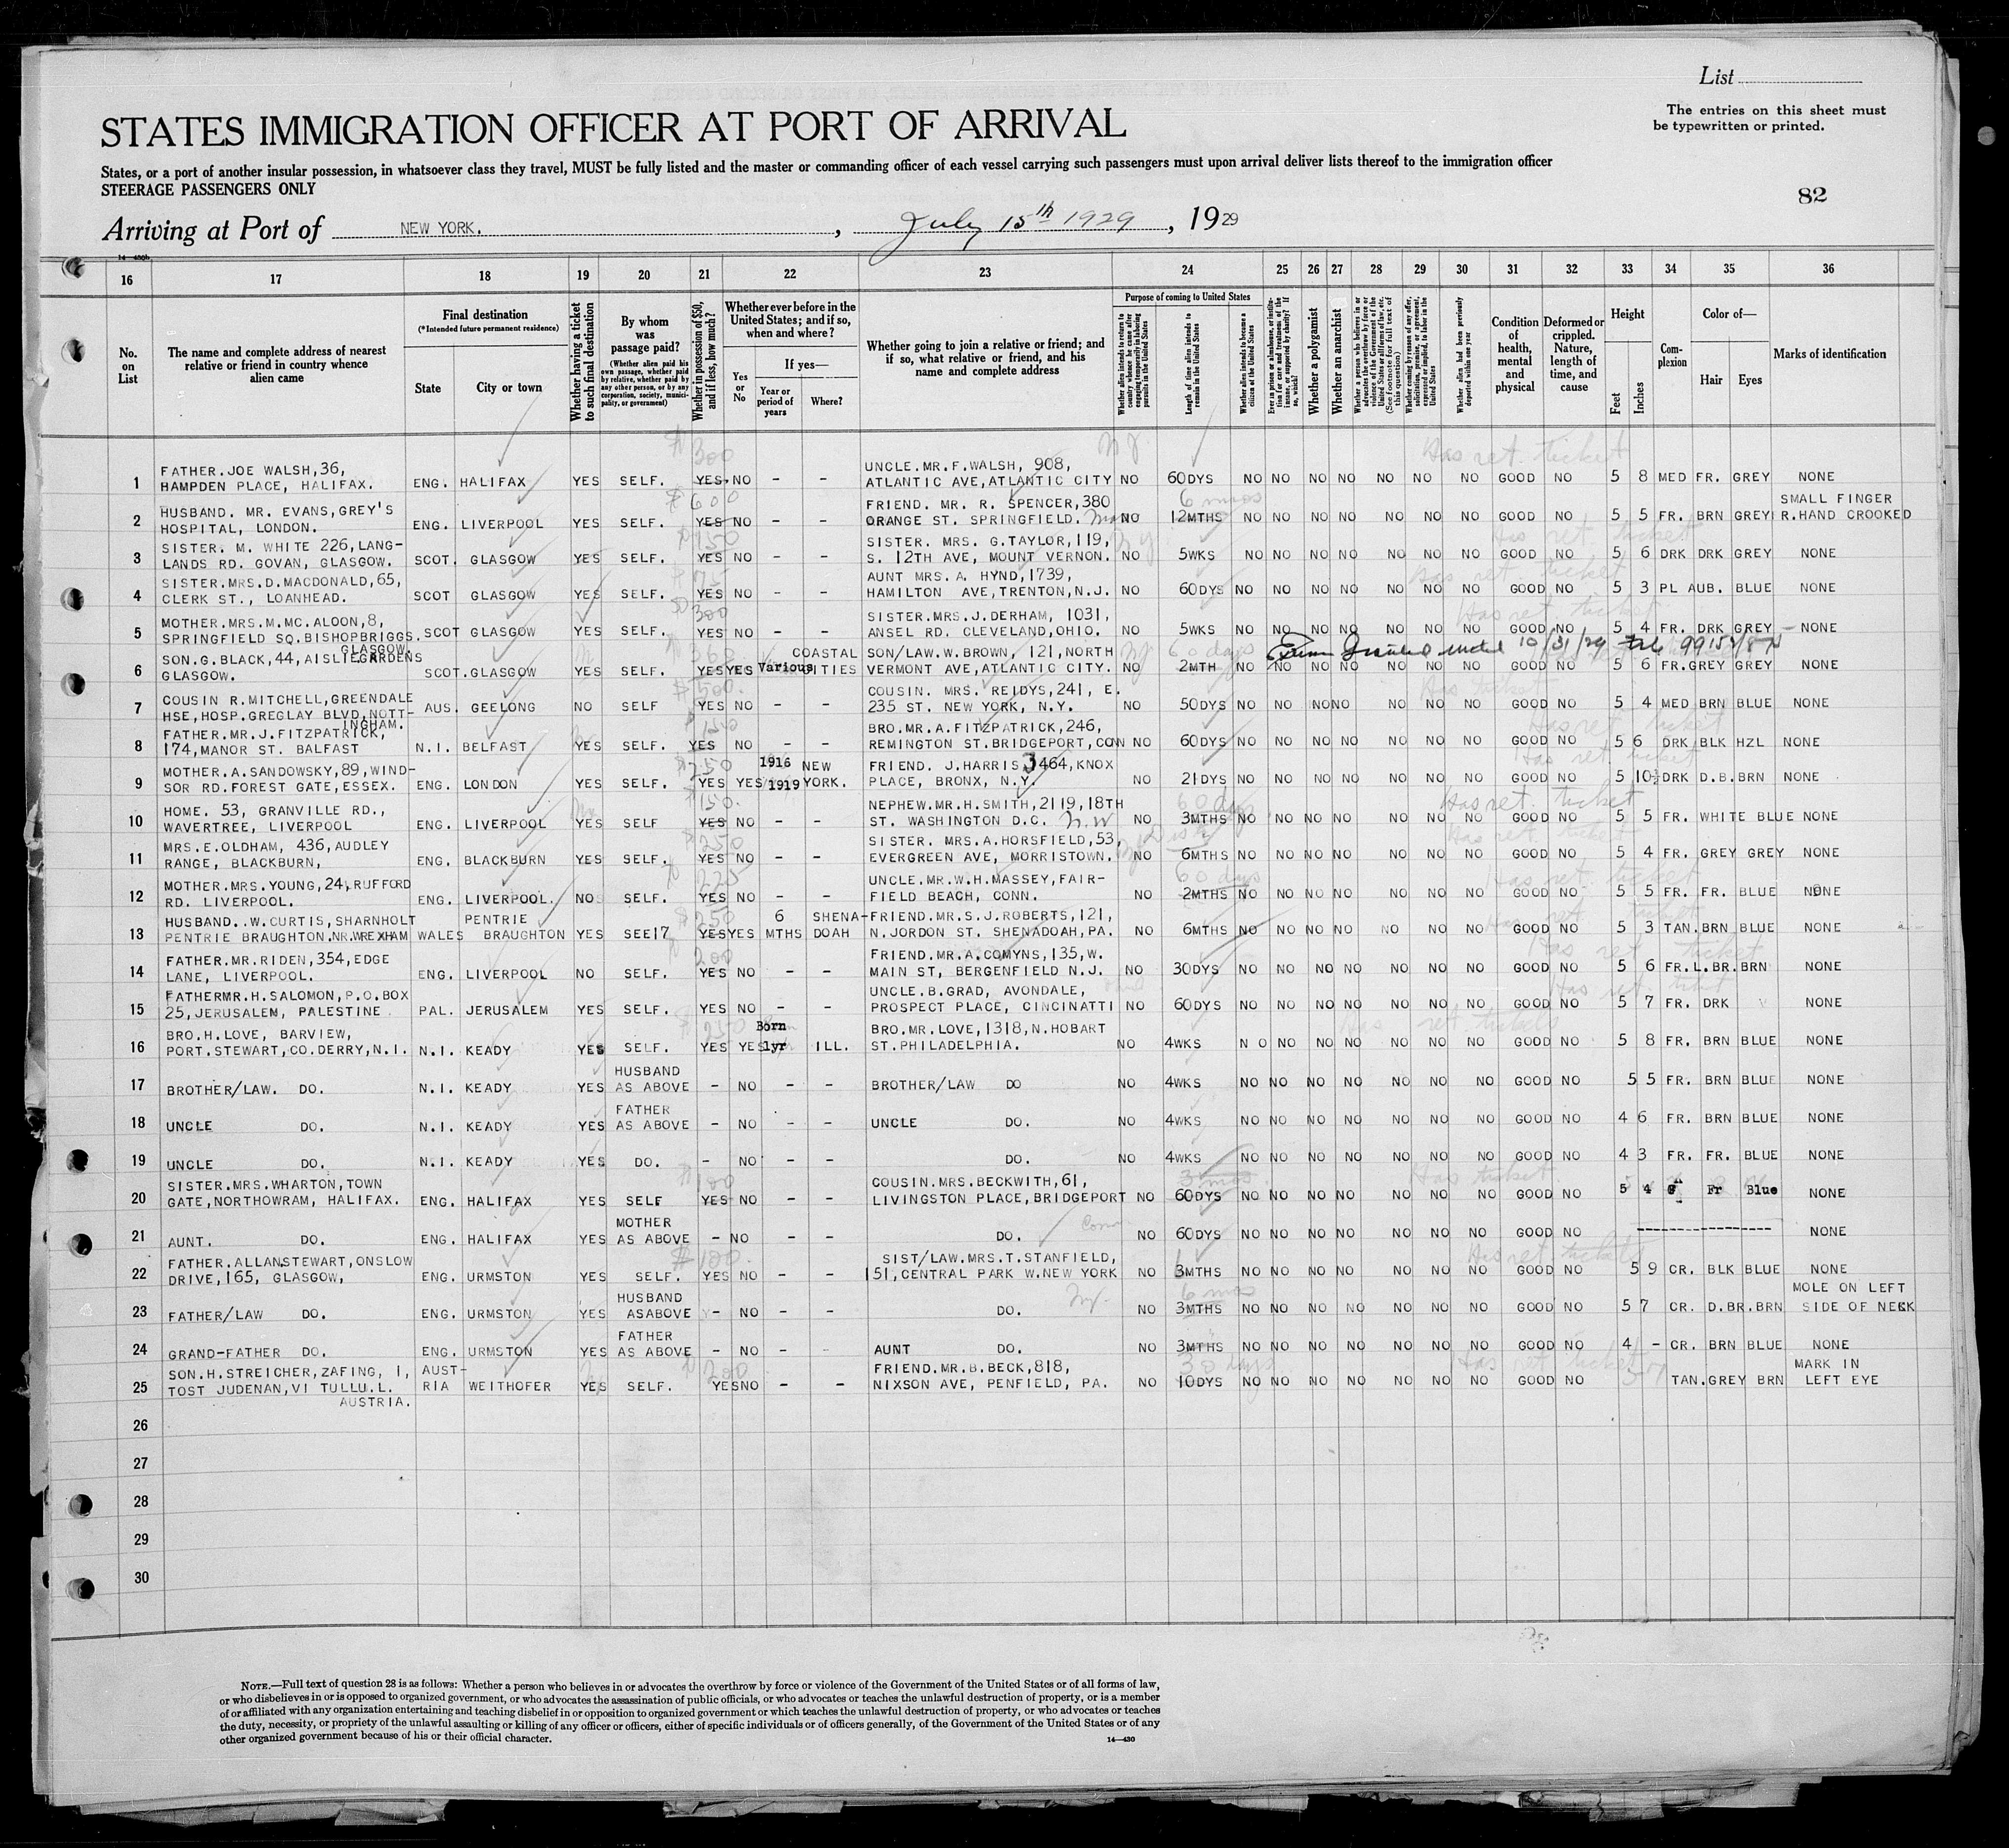 List
The entries on this sheet must
be typewritten or printed.
STATES IMMIGRATION OFFICER AT PORT OF ARRIVAL
States, or a port of another insular possession, in whatsoever class they travel, MUST be fully listed and the master or commanding officer of each vessel carrying such passengers must upon arrival deliver lists thereof to the immigration officer
STEERAGE PASSENGERS ONLY
82
Arriving at Port of NEW YORK. , July 15th 1929 , 1929
16 17 18 19 20 21 22 23 24 25 26 27 28 29 30 31 32 33 34 35 36
No. on List
The name and complete address of nearest relative or friend in country whence alien came
Final destination
(*Intended future permanent residence)
State
City or town
Whether having a ticket to such final destination
By whom was passage paid?
(Whether alien paid his own passage, whether paid by relative, whether paid by any other person, or by any corporation, society, municipality, or government)
Whether in possession of $50, and if less, how much?
Whether ever before in the United States; and if so, when and where?
Yes or No
If yes—
Year or period of years
Where?
Whether going to join a relative or friend; and if so, what relative or friend, and his name and complete address
Purpose of coming to United States
Whether alien intends to return to country whence he came after engaging temporarily in laboring pursuits in the United States
Length of time alien intends to remain in the United States
Whether alien intends to become a citizen of the United States
Ever in prison or almshouse, or institution for care and treatment of the insane, or supported by charity? If so, which?
Whether a polygamist
Whether an anarchist
Whether a person who believes in or advocates the overthrow by force or violence of the Government of the United States or all forms of law, etc. (See footnote for full text of this question)
Whether coming by reason of any offer, solicitation, promise, or agreement, expressed or implied, to labor in the United States
Whether alien had been previously deported within one year
Condition of health, mental and physical
Deformed or crippled. Nature, length of time, and cause
Height
Feet
Inches
Complexion
Color of—
Hair
Eyes
Marks of identification
$300 N.J. Has ret. ticket
FATHER.JOE WALSH,36, UNCLE.MR.F.WALSH, 908,
1 HAMPDEN PLACE, HALIFAX. ENG. HALIFAX YES SELF. YES. NO - - ATLANTIC AVE,ATLANTIC CITY NO 60DYS NO NO NO NO NO NO NO GOOD NO 5 8 MED FR. GREY NONE
HUSBAND. MR. EVANS,GREY'S $600 FRIEND. MR. R. SPENCER,380 6 mos SMALL FINGER
2 HOSPITAL, LONDON. ENG. LIVERPOOL YES SELF. YES NO - - ORANGE ST. SPRINGFIELD. NO 12MTHS NO NO NO NO NO NO NO GOOD NO 5 5 FR. BRN GREY R.HAND CROOKED
SISTER. M. WHITE 226,LANG- $150 SISTER. MRS. G.TAYLOR,119, N.Y. Has ret. ticket
3 LANDS RD. GOVAN, GLASGOW. SCOT. GLASGOW YES SELF. YES NO - - S. 12TH AVE, MOUNT VERNON. NO 5WKS NO NO NO NO NO NO NO GOOD NO 5 6 DRK DRK GREY NONE
SISTER.MRS.D.MACDONALD,65, AUNT MRS.A. HYND,1739, Has ret. ticket
4 CLERK ST., LOANHEAD. SCOT GLASGOW YES SELF. YES NO - - HAMILTON AVE,TRENTON,N.J. NO 60DYS NO NO NO NO NO NO NO GOOD NO 5 3 PL AUB. BLUE NONE
MOTHER.MRS.M.MC.ALOON,8, $300 SISTER.MRS.J.DERHAM, 1031, Has ret. ticket
5 SPRINGFIELD SQ.BISHOPBRIGGS. SCOT GLASGOW YES SELF. YES NO - - ANSEL RD. CLEVELAND,OHIO. NO 5WKS NO NO NO NO NO NO NO GOOD NO 5 4 FR. DRK GREY NONE
GLASGOW.
SON.G.BLACK,44,AISLIEGARDENS COASTAL SON/LAW.W.BROWN, 121,NORTH 60 days Granted until 10/31/29
6 GLASGOW. SCOT.GLASGOW YES SELF. YES YES Various CITIES VERMONT AVE,ATLANTIC CITY. NO 2MTH NO NO NO NO NO NO NO GOOD NO 5 6 FR.GREY GREY NONE
COUSIN R.MITCHELL,GREENDALE $500. COUSIN. MRS. REIDYS,241, E. Has ticket
7 HSE,HOSP.GREGLAY BLVD,NOTT- AUS. GEELONG NO SELF YES NO - - 235 ST. NEW YORK, N.Y. NO 50DYS NO NO NO NO NO NO NO GOOD NO 5 4 MED BRN BLUE NONE
INGHAM.
FATHER.MR.J.FITZPATRICK, BRO.MR.A.FITZPATRICK,246, Has ret. ticket
8 174,MANOR ST. BALFAST N.I. BELFAST YES SELF. YES NO - - REMINGTON ST.BRIDGEPORT,CON NO 60DYS NO NO NO NO NO NO NO GOOD NO 5 6 DRK BLK HZL NONE
MOTHER.A.SANDOWSKY,89,WIND- $250 1916 NEW FRIEND. J.HARRIS 3464,KNOX Has ret. ticket
9 SOR RD.FOREST GATE,ESSEX. ENG. LONDON YES SELF. YES YES 1919 YORK. PLACE, BRONX, N.Y. NO 21DYS NO NO NO NO NO NO NO GOOD NO 5 10½ DRK D.B.BRN NONE
HOME. 53, GRANVILLE RD., $150. NEPHEW.MR.H.SMITH,2119,18TH 60 days Has ret. ticket
10 WAVERTREE, LIVERPOOL ENG. LIVERPOOL YES SELF YES NO - - ST. WASHINGTON D.C. N.W NO 3MTHS NO NO NO NO NO NO NO GOOD NO 5 5 FR. WHITE BLUE NONE
MRS.E.OLDHAM, 436,AUDLEY $250 SISTER. MRS.A.HORSFIELD,53, Has ret. ticket
11 RANGE, BLACKBURN, ENG. BLACKBURN YES SELF. YES NO - - EVERGREEN AVE, MORRISTOWN. NO 6MTHS NO NO NO NO NO NO NO GOOD NO 5 4 FR. GREY GREY NONE
MOTHER.MRS.YOUNG,24,RUFFORD $225 UNCLE.MR.W.H.MASSEY,FAIR- 60 days Has ret. ticket
12 RD. LIVERPOOL. ENG. LIVERPOOL. NO SELF. YES NO - - FIELD BEACH, CONN. NO 2MTHS NO NO NO NO NO NO NO GOOD NO 5 5 FR. FR. BLUE NONE
HUSBAND..W.CURTIS,SHARNHOLT PENTRIE $250 6 SHENA- FRIEND.MR.S.J.ROBERTS,121, Has ret. ticket
13 PENTRIE BRAUGHTON.NR.WREXHAM WALES BRAUGHTON YES SEE17 YES YES MTHS DOAH N.JORDON ST. SHENADOAH,PA. NO 6MTHS NO NO NO NO NO NO NO GOOD NO 5 3 TAN.BRN BLUE NONE
FATHER.MR.RIDEN,354,EDGE $200 FRIEND.MR.A.COMYNS,135,W. Has ret ticket
14 LANE, LIVERPOOL. ENG. LIVERPOOL NO SELF. YES NO - - MAIN ST, BERGENFIELD N.J. NO 30DYS NO NO NO NO NO NO NO GOOD NO 5 6 FR.L.BR.BRN NONE
FATHERMR.H.SALOMON,P.O.BOX UNCLE.B.GRAD, AVONDALE, Has ret. ticket
15 25,JERUSALEM, PALESTINE PAL. JERUSALEM YES SELF. YES NO - - PROSPECT PLACE, CINCINATTI NO 60DYS NO NO NO NO NO NO NO GOOD NO 5 7 FR. DRK NONE
BRO.H.LOVE, BARVIEW, Born BRO.MR.LOVE,1318,N.HOBART Has ret tickets
16 PORT.STEWART,CO.DERRY,N.I. N.I. KEADY YES SELF. YES YES 1yr ILL. ST.PHILADELPHIA. NO 4WKS NO NO NO NO NO NO NO GOOD NO 5 8 FR. BRN BLUE NONE
HUSBAND
17 BROTHER/LAW. DO. N.I. KEADY YES AS ABOVE - NO - - BROTHER/LAW DO NO 4WKS NO NO NO NO NO NO NO GOOD NO 5 5 FR. BRN BLUE NONE
FATHER
18 UNCLE DO. N.I. KEADY YES AS ABOVE - NO - - UNCLE DO. NO 4WKS NO NO NO NO NO NO NO GOOD NO 4 6 FR. BRN BLUE NONE
19 UNCLE DO. N.I. KEADY YES DO. - NO - - DO. NO 4WKS NO NO NO NO NO NO NO GOOD NO 4 3 FR. FR. BLUE NONE
SISTER.MRS.WHARTON,TOWN $100 COUSIN.MRS.BECKWITH,61, 3 mos. Has ticket
20 GATE,NORTHOWRAM, HALIFAX. ENG. HALIFAX YES SELF YES NO - - LIVINGSTON PLACE,BRIDGEPORT NO 60DYS NO NO NO NO NO NO NO GOOD NO 5 4 Fr Blue NONE
MOTHER Conn
21 AUNT. DO. ENG. HALIFAX YES AS ABOVE - NO - - DO. NO 60DYS NO NO NO NO NO NO NO GOOD NO --------------- NONE
FATHER.ALLANSTEWART,ONSLOW $100. SIST/LAW.MRS.T.STANFIELD, Has ret tickets
22 DRIVE,165, GLASGOW, ENG. URMSTON YES SELF. YES NO - - 151,CENTRAL PARK W.NEW YORK NO 3MTHS NO NO NO NO NO NO NO GOOD NO 5 9 CR. BLK BLUE NONE
HUSBAND N.Y. 6 mos MOLE ON LEFT
23 FATHER/LAW DO. ENG. URMSTON YES ASABOVE - NO - - DO. NO 3MTHS NO NO NO NO NO NO NO GOOD NO 5 7 CR. D.BR.BRN SIDE OF NECK
FATHER
24 GRAND-FATHER DO. ENG. URMSTON YES AS ABOVE - NO - - AUNT DO. NO 3MTHS NO NO NO NO NO NO NO GOOD NO 4 - CR. BRN BLUE NONE
SON.H.STREICHER,ZAFING, 1, AUST- $200 FRIEND.MR.B.BECK,818, 30 days Has ret ticket MARK IN
25 TOST JUDENAN,VI TULLU.L. RIA WEITHOFER YES SELF. YES NO - - NIXSON AVE, PENFIELD, PA. NO 10DYS NO NO NO NO NO NO NO GOOD NO 5 7 TAN.GREY BRN LEFT EYE
AUSTRIA.
26
27
28
29
30
NOTE.—Full text of question 28 is as follows: Whether a person who believes in or advocates the overthrow by force or violence of the Government of the United States or of all forms of law,
or who disbelieves in or is opposed to organized government, or who advocates the assassination of public officials, or who advocates or teaches the unlawful destruction of property, or is a member
of or affiliated with any organization entertaining and teaching disbelief in or opposition to organized government or which teaches the unlawful destruction of property, or who advocates or teaches
the duty, necessity, or propriety of the unlawful assaulting or killing of any officer or officers, either of specific individuals or of officers generally, of the Government of the United States or of any
other organized government because of his or their official character.
14—430